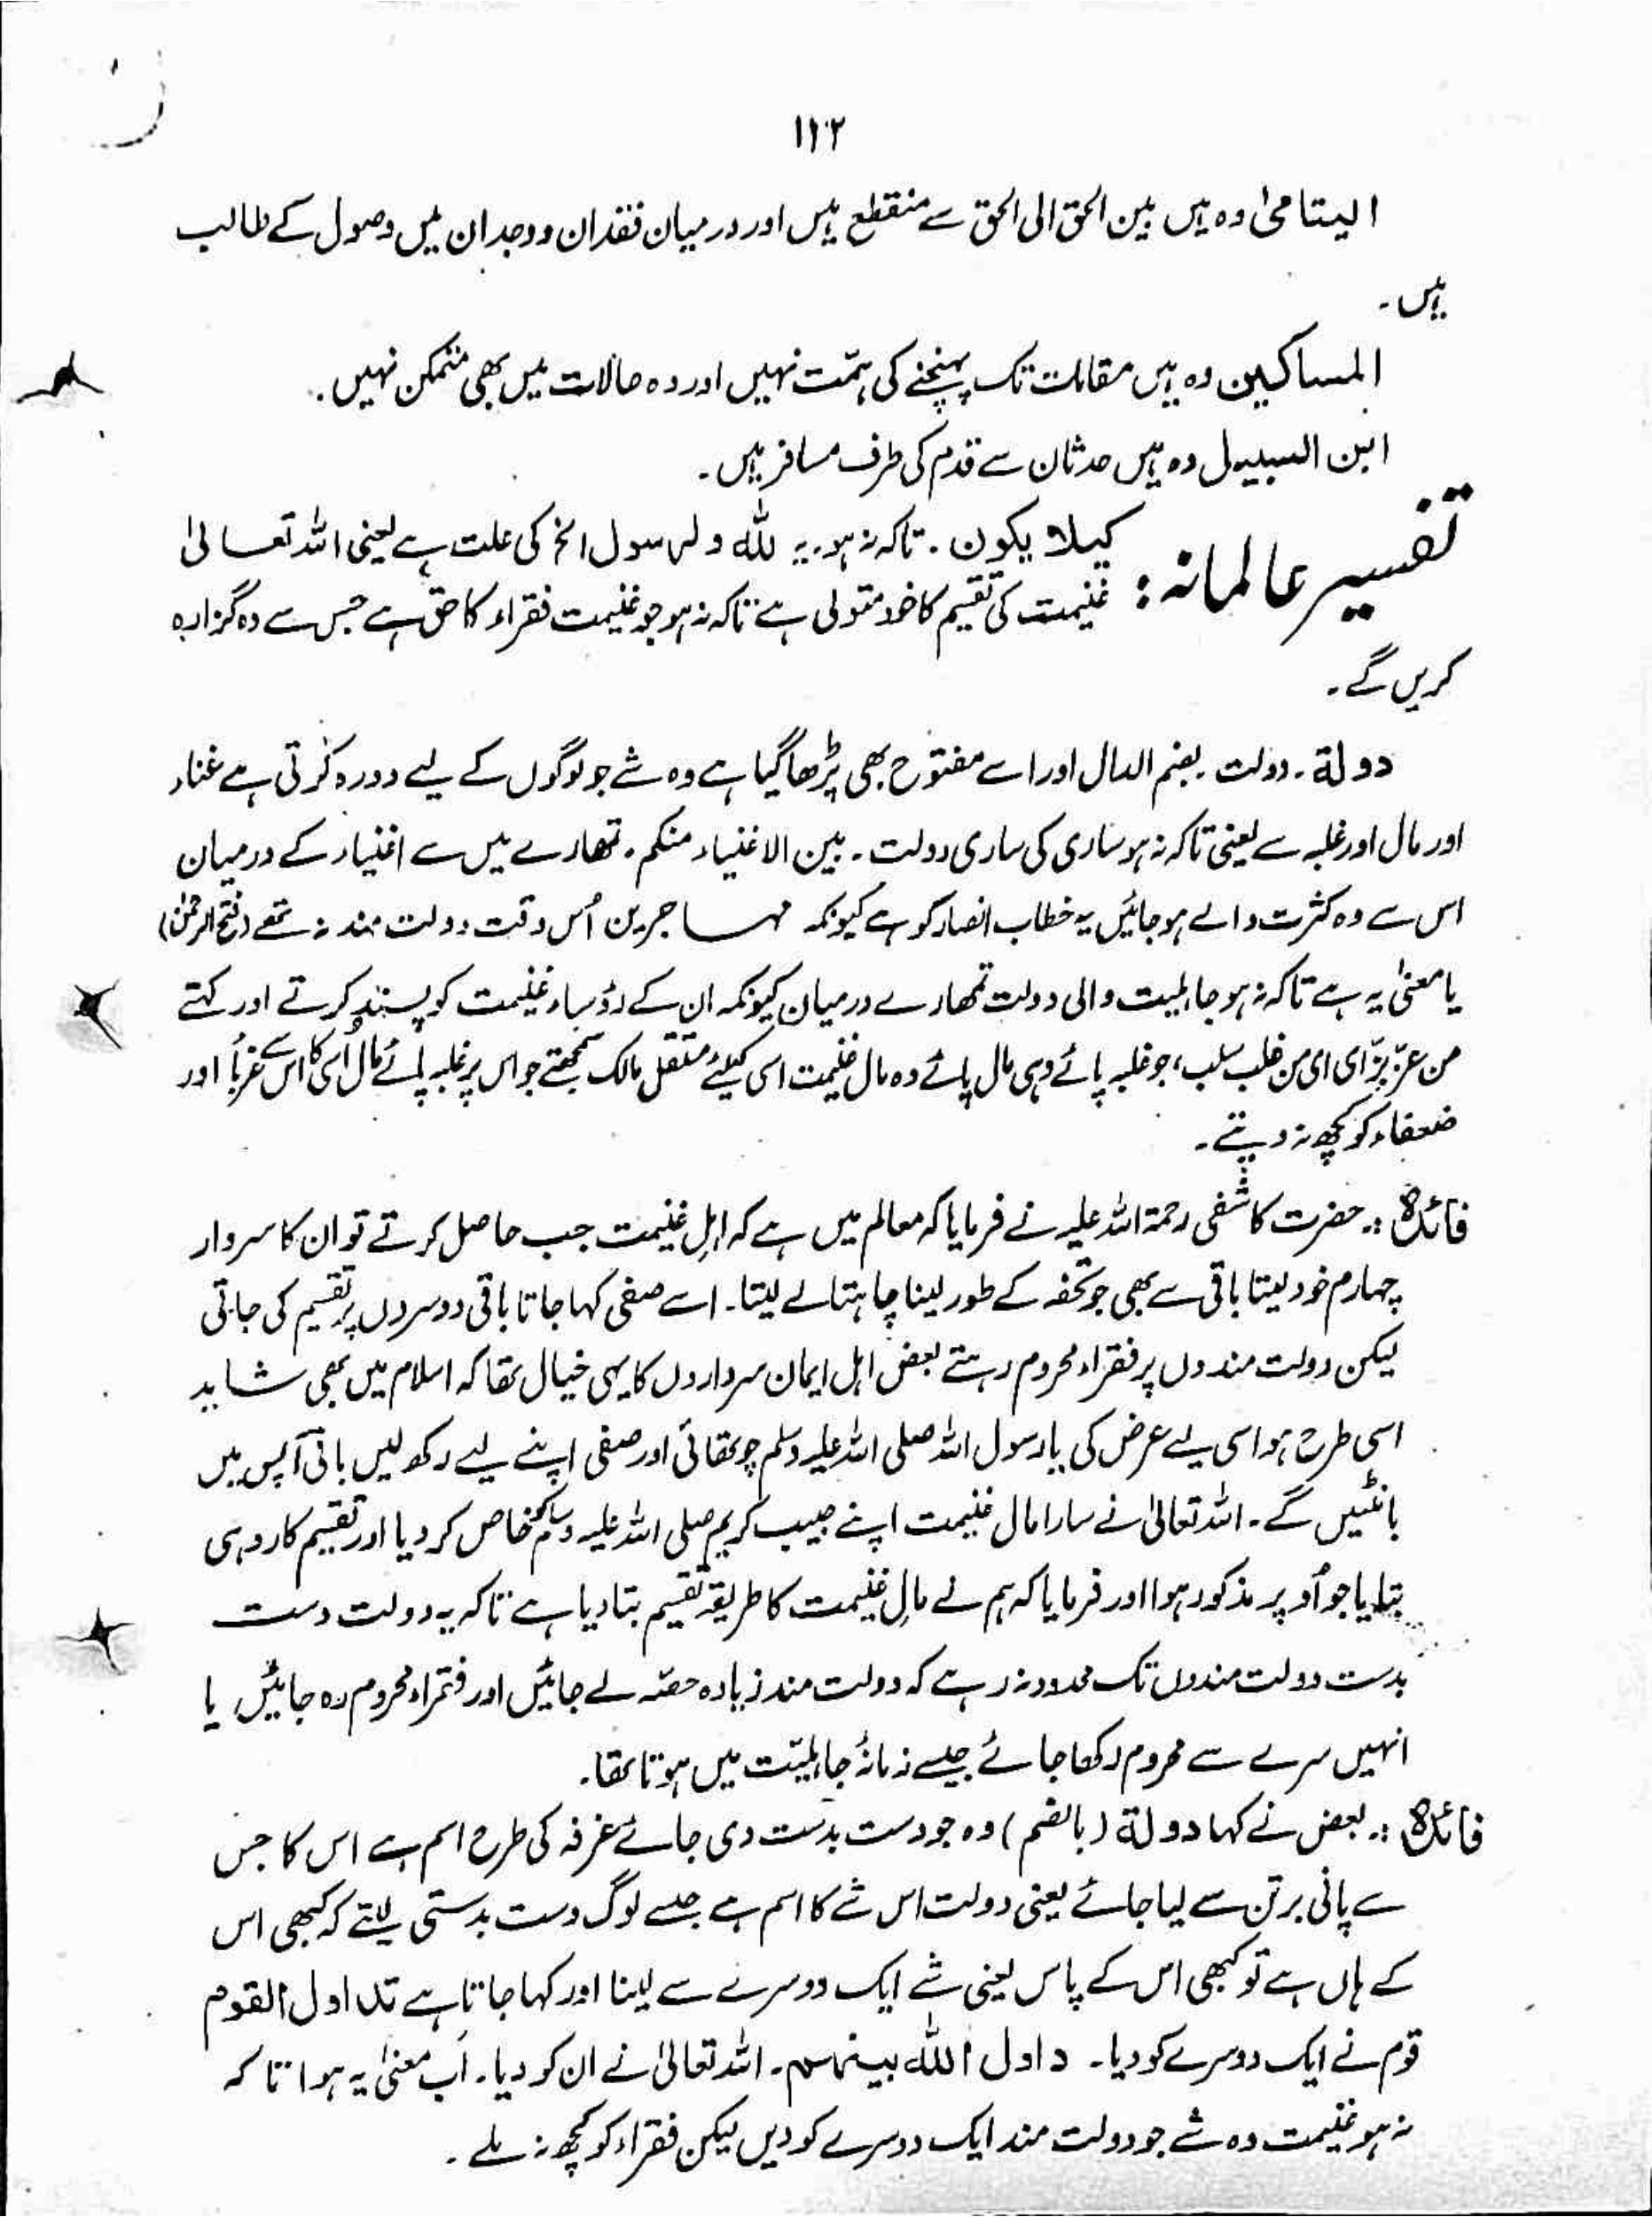 ۱۱۲
الیتامیٰ وہ ہیں بین الحق الی الحق سے منقطع ہیں اور درمیان فقدان و وجدان میں وصول کے طالب
ہیں۔
المساکین وہ ہیں مقامات تک پہنچنے کی ہمّت نہیں اور وہ حالات میں بھی متمکن نہیں۔
ابن السبیل وہ ہیں حدثان سے قدم کی طرف مسافر ہیں۔
تفسیر عالمانہ: کیلا یکون۔ تاکہ نہ ہو۔ یہ للّٰہ و لرسول الخ کی علت ہے یعنی اللہ تعالیٰ
غنیمت کی تقسیم کا خود متولی ہے تاکہ نہ ہو جو غنیمت فقراء کا حق ہے جس سے وہ گزارہ
کریں گے۔
دولة۔ دولت۔ بضم الدال اور اسے مفتوح بھی پڑھا گیا ہے وہ شے جو لوگوں کے لیے دورہ کرتی ہے غناء
اور مال اور غلبہ سے یعنی تاکہ نہ ہو ساری کی ساری دولت۔ بین الاغنیاء منکم۔ تمھارے میں سے اغنیاء کے درمیان
اس سے وہ کثرت والے ہو جائیں یہ خطاب انصار کو ہے کیونکہ مہاجرین اُس وقت دولت مند نہ تھے (فتح الرحمٰن)
یا معنیٰ یہ ہے تاکہ نہ ہو جاہلیت والی دولت تمھارے درمیان کیونکہ ان کے رؤساء غنیمت کو پسند کرتے اور کہتے
من عزّ بزّ ای ای من غلب سلب، جو غلبہ پائے وہی مال پائے وہ مال غنیمت اسی کیلئے مستقل مالک سمجھتے جو اس پر غلبہ پائے مال اُسی کا اس سے غرباُ اور
ضعفاء کو کچھ نہ دیتے۔
فائدہ :۔ حضرت کاشفی رحمۃ اللہ علیہ نے فرمایا کہ معالم میں ہے کہ اہلِ غنیمت جب حاصل کرتے تو ان کا سردار
چہارم خود لیتا باقی سے بھی جو تحفہ کے طور لینا چاہتا لے لیتا۔ اسے صفی کہا جاتا باقی دوسروں پر تقسیم کی جاتی
لیکن دولت مندوں پر فقراء محروم رہتے بعض اہل ایمان سرداروں کا یہی خیال تھا کہ اسلام میں بھی شاید
اسی طرح ہو اسی لیے عرض کی یارسول اللہ صلی اللہ علیہ وسلم چوتھائی اور صفی اپنے لیے رکھ لیں باقی آپس میں
بانٹیں گے۔ اللہ تعالیٰ نے سارا مال غنیمت اپنے حبیب کریم صلی اللہ علیہ وسلم خاص کر دیا اور تقسیم کار وہی
بتایا جو اُوپر مذکور ہوا اور فرمایا کہ ہم نے مالِ غنیمت کا طریقہ تقسیم بتا دیا ہے تاکہ یہ دولت دست
بدست دولت مندوں تک محدود نہ رہے کہ دولت مند زیادہ حصّہ لے جائیں اور فقراء محروم رہ جائیں یا
انہیں سرے سے محروم رکھا جائے جیسے زمانۂ جاہلیّت میں ہوتا تھا۔
فائدہ :۔ بعض نے کہا دولة (بالضم) وہ جو دست بدست دی جائے غرفہ کی طرح اسم ہے اس کا جس
سے پانی برتن سے لیا جائے یعنی دولت اس شے کا اسم ہے جسے لوگ دست بدستی لیتے کہ کبھی اس
کے ہاں ہے تو کبھی اس کے پاس یعنی شے ایک دوسرے سے لینا اور کہا جاتا ہے تداول القوم
قوم نے ایک دوسرے کو دیا۔ داول اللّٰہ بینہم۔ اللہ تعالیٰ نے ان کو دیا۔ اَب معنیٰ یہ ہوا تاکہ
نہ ہو غنیمت وہ شے جو دولت مند ایک دوسرے کو دیں لیکن فقراء کو کچھ نہ ملے۔